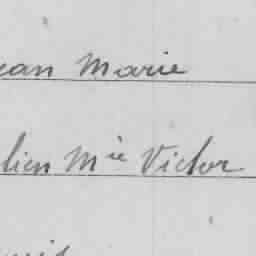 ean Marie
lien Mie Victor